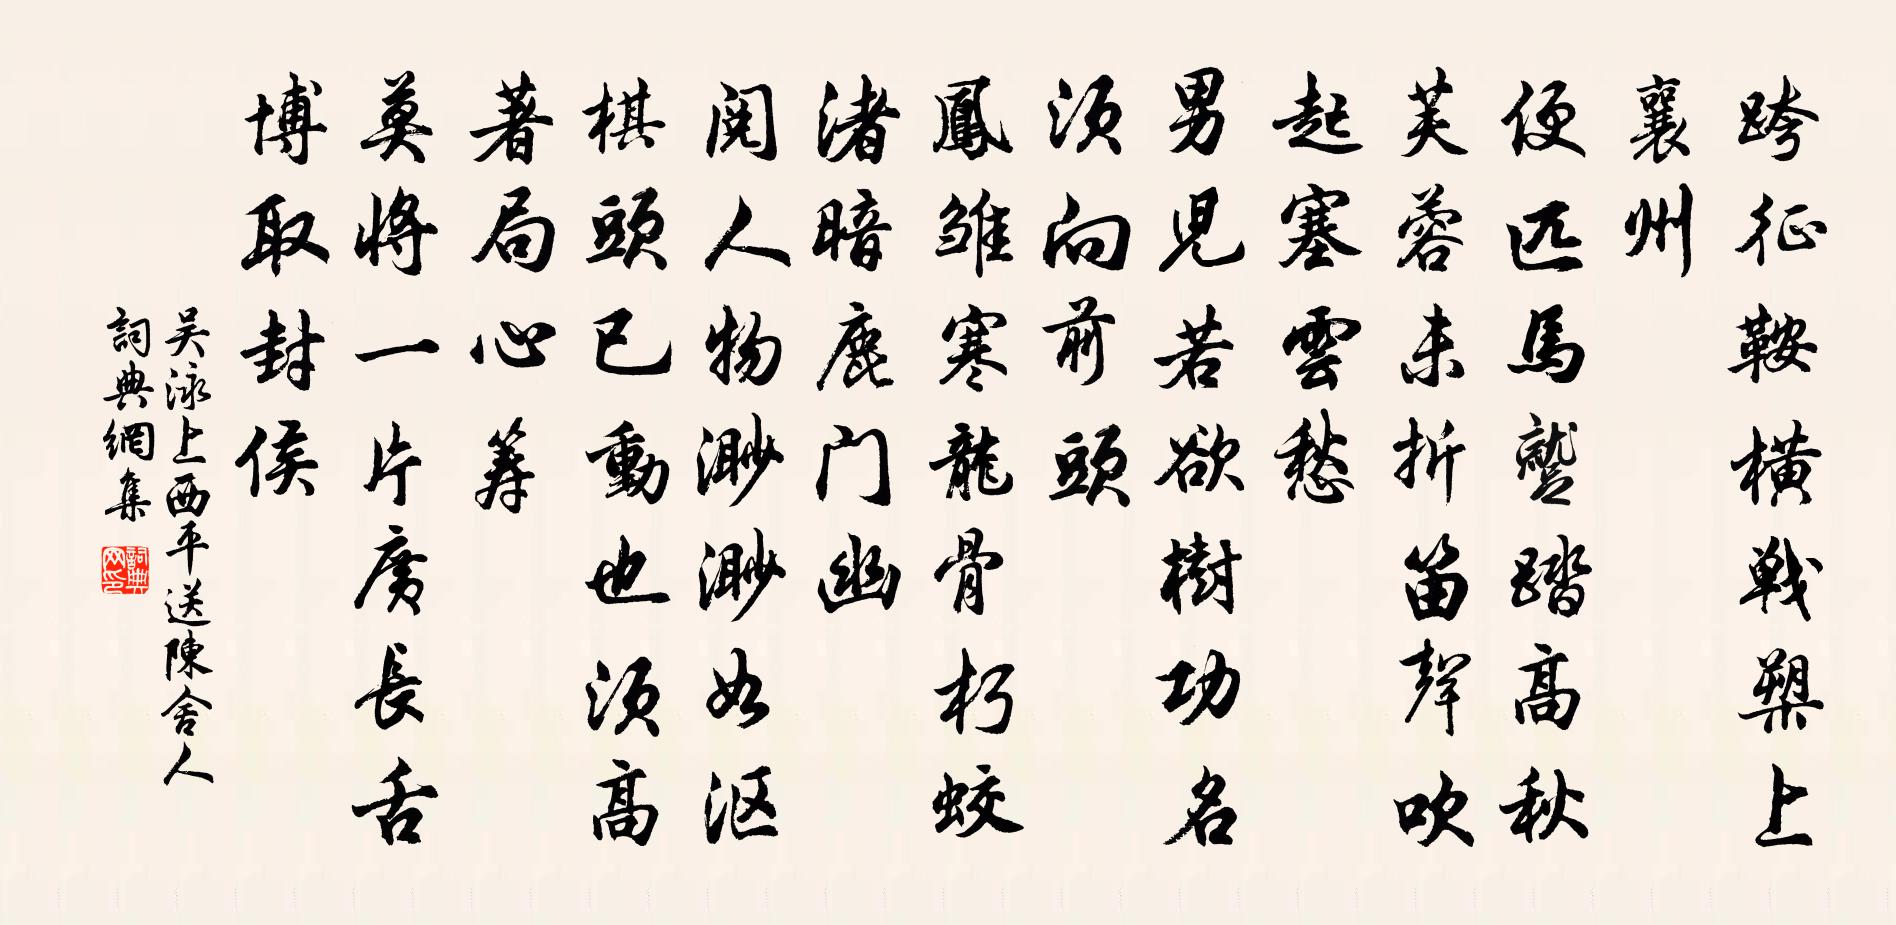 跨征鞍橫戰槊上
襄州
便匹馬蹔踏高秋
芙蓉未折笛聲吹
起塞雲愁
男兒若欲樹功名
須向前頭
鳳雛寒龍骨朽蛟
渚暗鹿门幽
閱人物渺渺如漚
棋頭已動也須高
著局心筭
莫將一片廣長舌
博取封侯
吴泳上西平送陳舍人
詞典網集
詞典网印